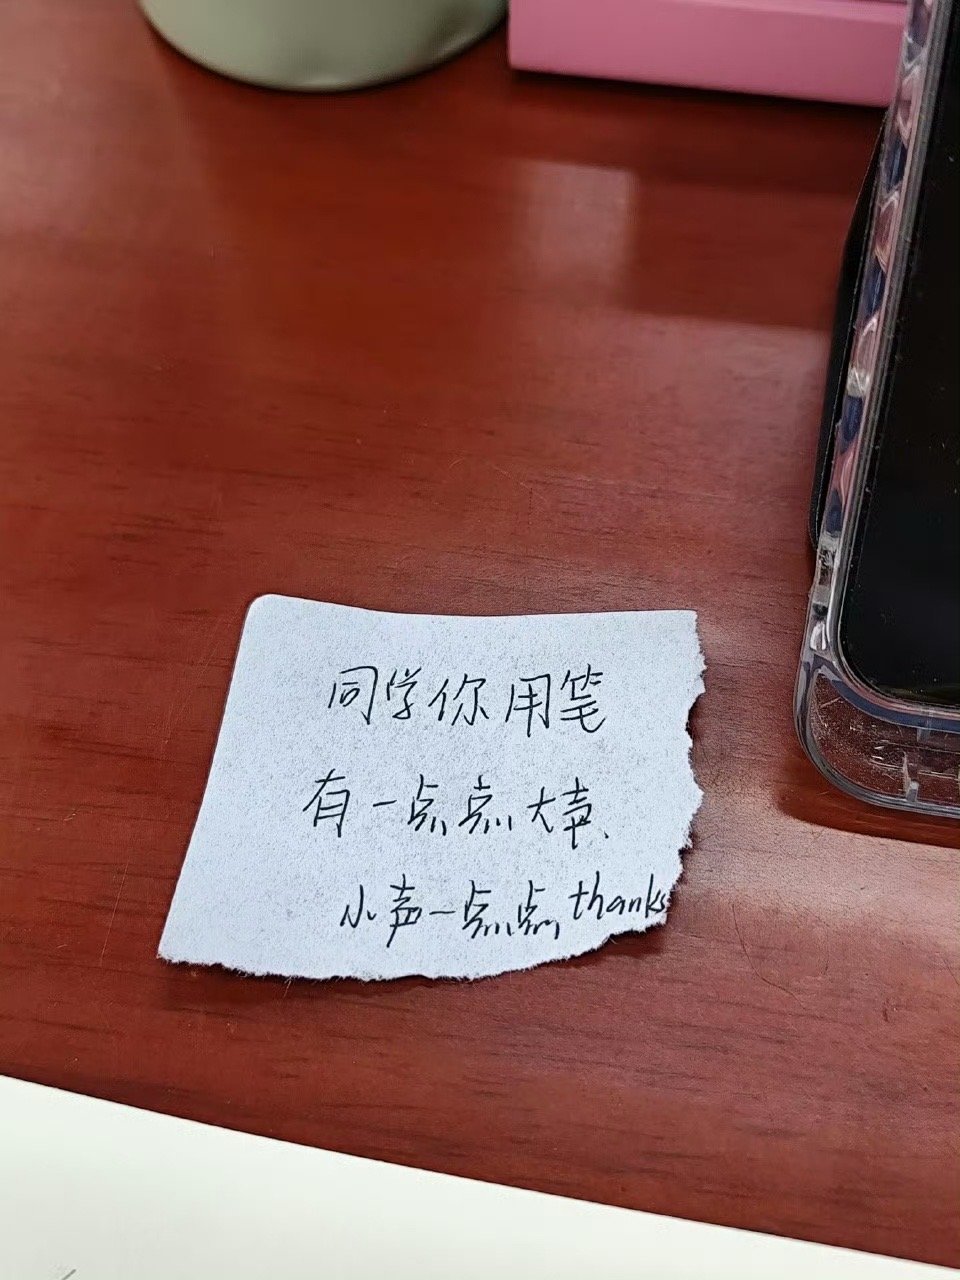 同学你用笔
有一点点大声、
小声一点点,thanks